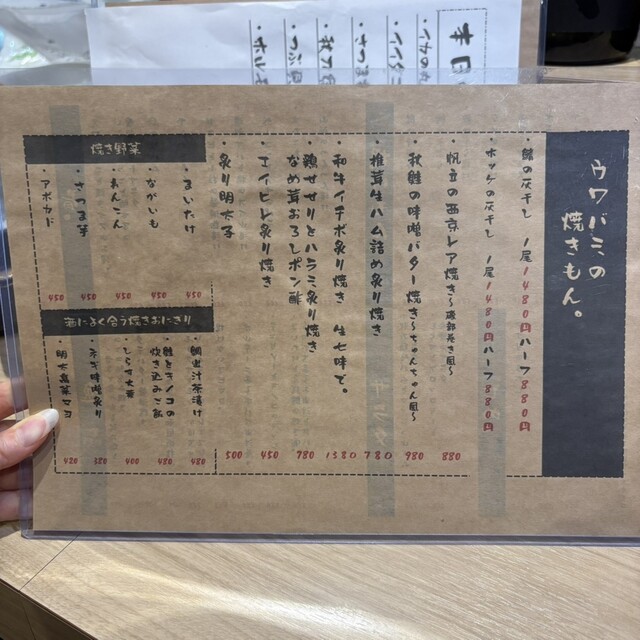 ウワバミの
焼きもん。
・鯖の灰干し 1尾1480円ハーフ880円
・ホッケの灰干し 1尾1480円ハーフ880円
・帆立の西京レア焼き〜磯部巻き風〜 880
・秋鮭の味噌バター焼き〜ちゃんちゃん風〜 980
・椎茸生ハム詰め炙り焼き 780
・和牛イチボ炙り焼き 生七味で。 1580
・鶏せせりとハラミ炙り焼き
なめ茸おろしポン酢 780
・エイヒレ炙り焼き 450
・炙り明太子 500
焼き野菜
・まいたけ 450
・ながいも 450
・れんこん 450
・さつま芋 450
・アボカド 450
酒によく合う焼きおにぎり
・鯛出汁茶漬け 480
・鮭とキノコの
炊き込みご飯 480
・しらす大葉 400
・ネギ味噌炙り 320
・明太高菜マヨ 420